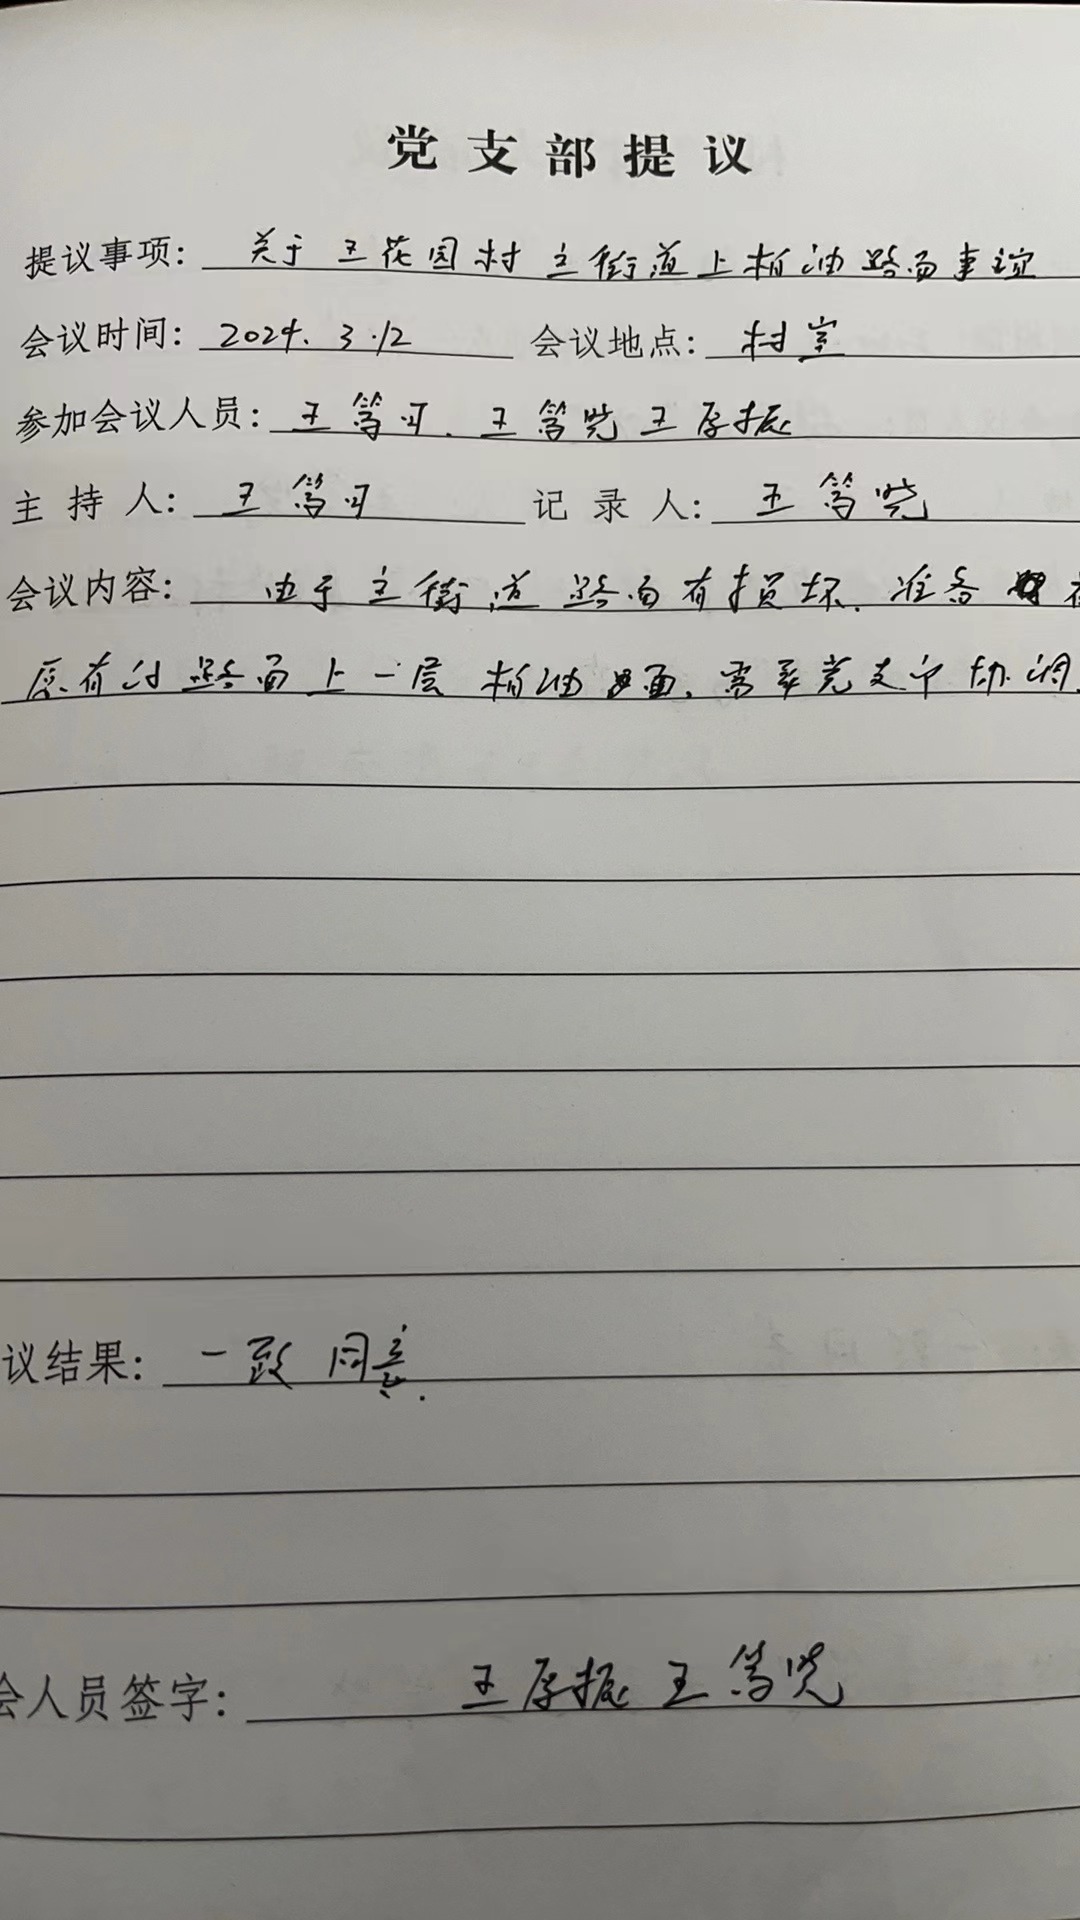 党支部提议
提议事项: 关于王花园村主街道上柏油路面事谊
会议时间: 2024. 3.12 会议地点: 村室
参加会议人员: 王笃可、王笃党 王厚振
主持人: 王笃可 记录人: 王笃党
会议内容: 由于主街道路面有损坏. 准备在
原有的路面上一层柏油路面, 需要党支部协调.
议结果: 一致同意.
会人员签字: 王厚振 王笃党